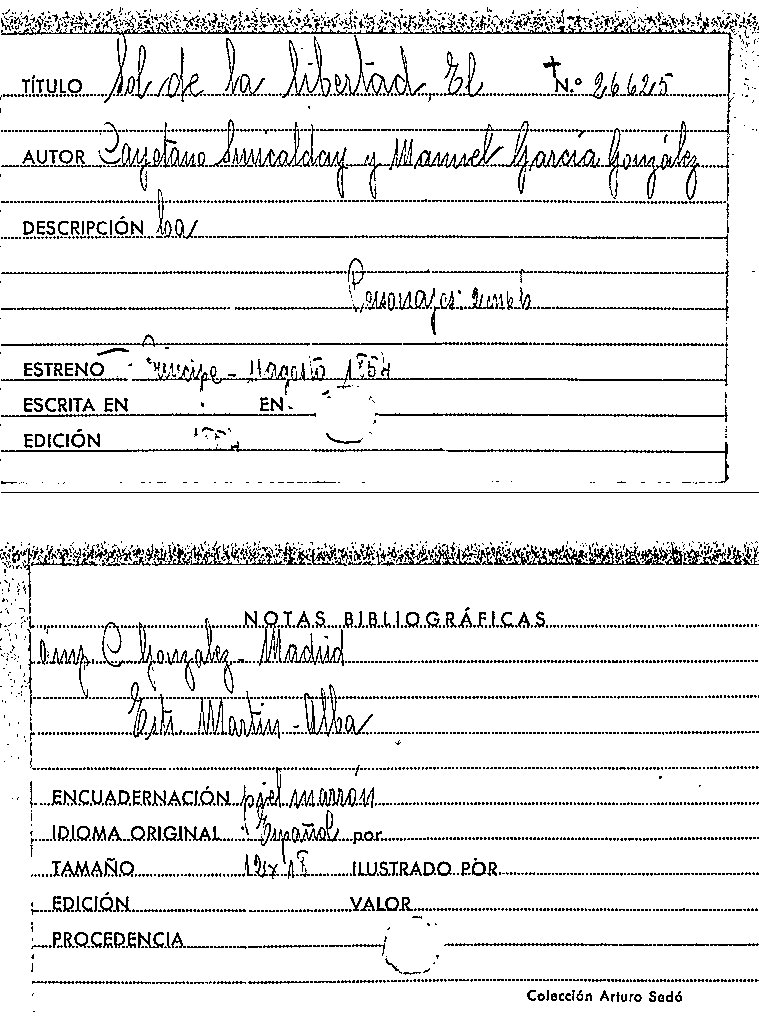 TÍTULO Sol de la libertad, El N.º 26625
AUTOR Cayetano Suricalday y Manuel García González
DESCRIPCIÓN
Personajes:
ESTRENO Príncipe - 11 agosto 1854
ESCRITA EN EN
EDICIÓN
NOTAS BIBLIOGRÁFICAS
Imp. C. González - Madrid
Estr. Martin - Alba
ENCUADERNACIÓN piel marrón
IDIOMA ORIGINAL Español por
TAMAÑO 12 x 18 ILUSTRADO POR
EDICIÓN VALOR
PROCEDENCIA
Colección Arturo Sedó